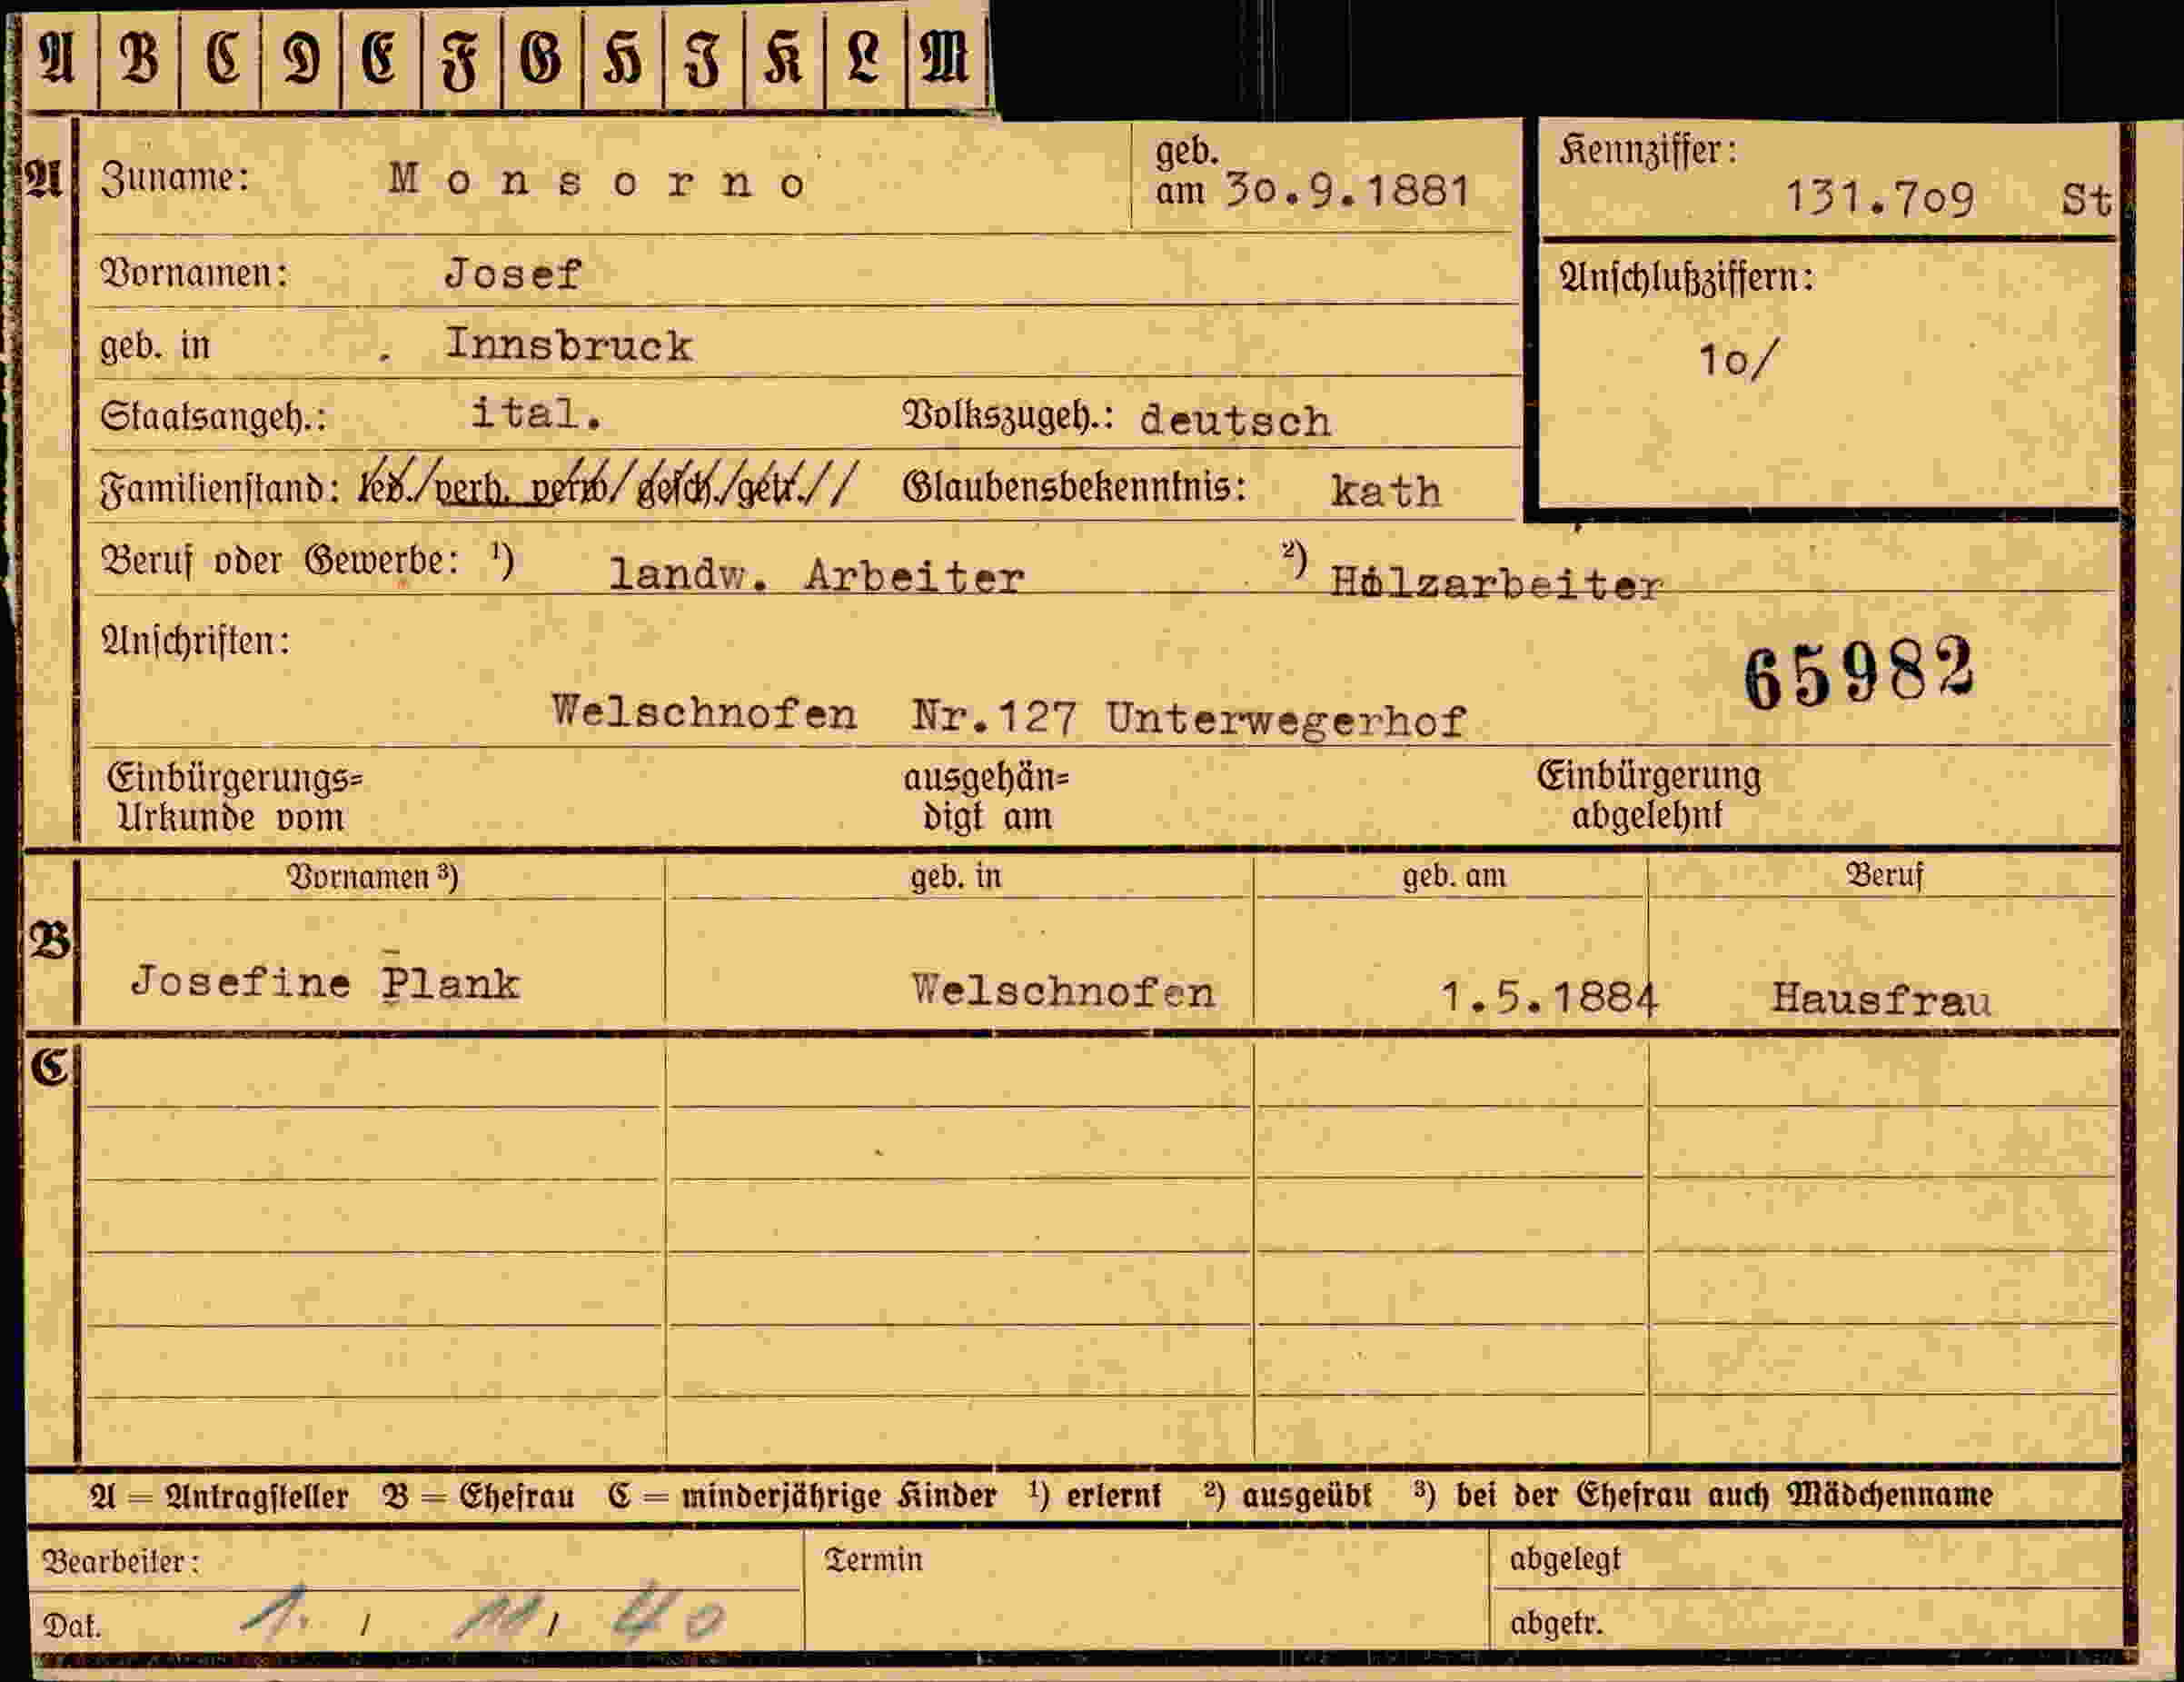 A B C D E F G H I K L M
A Zuname: Monsorno geb. am 30.9.1881
Kennziffer: 131.709 St
Vornamen: Josef
Anschlußziffern:
10/
geb. in . Innsbruck
Staatsangeh.: ital. Volkszugeh.: deutsch
Familienstand: led./verh. verw/gesch./getr.// Glaubensbekenntnis: kath
Beruf oder Gewerbe: ¹) landw. Arbeiter ²) Holzarbeiter
Anschriften:
65982
Welschnofen Nr.127 Unterwegerhof
Einbürgerungs= ausgehän= Einbürgerung
Urkunde vom digt am abgelehnt
Vornamen ³) geb. in geb. am Beruf
B
Josefine Plank Welschnofen 1.5.1884 Hausfrau
C
A = Antragsteller B = Ehefrau C = minderjährige Kinder ¹) erlernt ²) ausgeübt ³) bei der Ehefrau auch Mädchenname
Bearbeiter: Termin abgelegt
Dat. 1. / 11 / 40 abgetr.